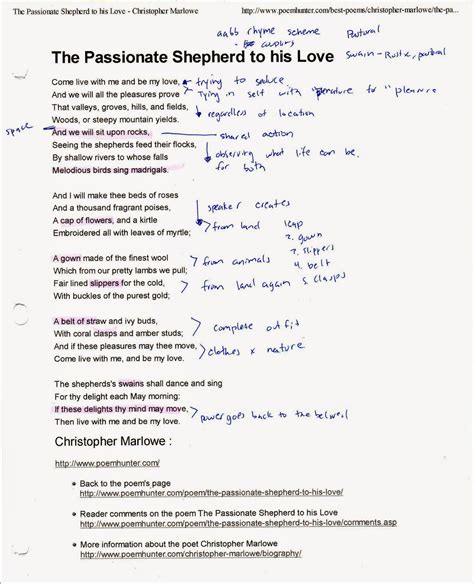 The Passionate Shepherd to his Love - Christopher Marlowe http://www.poemhunter.com/best-poems/christopher-marlowe/the-pa...
aabb rhyme scheme Pastoral
= couplets
The Passionate Shepherd to his Love Swain - Rustic, pastoral
Come live with me and be my love, trying to seduce
And we will all the pleasures prove Tying in self with "pleasure for" pleasure
That valleys, groves, hills, and fields,
Woods, or steepy mountain yields. regardless of location
space And we will sit upon rocks, shared action
Seeing the shepherds feed their flocks,
By shallow rivers to whose falls observing what life can be
Melodious birds sing madrigals. for both
And I will make thee beds of roses
And a thousand fragrant poises, speaker creates
A cap of flowers, and a kirtle from land 1 cap
Embroidered all with leaves of myrtle; 2. gown
3. slippers
A gown made of the finest wool from animals 4. belt
Which from our pretty lambs we pull;
Fair lined slippers for the cold, from land again 5. clasps
With buckles of the purest gold;
A belt of straw and ivy buds,
With coral clasps and amber studs; complete outfit
And if these pleasures may thee move, clothes x nature
Come live with me, and be my love.
The shepherds's swains shall dance and sing
For thy delight each May morning:
If these delights thy mind may move,
Then live with me and be my love. power goes back to the
Christopher Marlowe :
http://www.poemhunter.com/
• Back to the poem's page
http://www.poemhunter.com/poem/the-passionate-shepherd-to-his-love/
• Reader comments on the poem The Passionate Shepherd to his Love
http://www.poemhunter.com/poem/the-passionate-shepherd-to-his-love/comments.asp
• More information about the poet Christopher Marlowe
http://www.poemhunter.com/christopher-marlowe/biography/